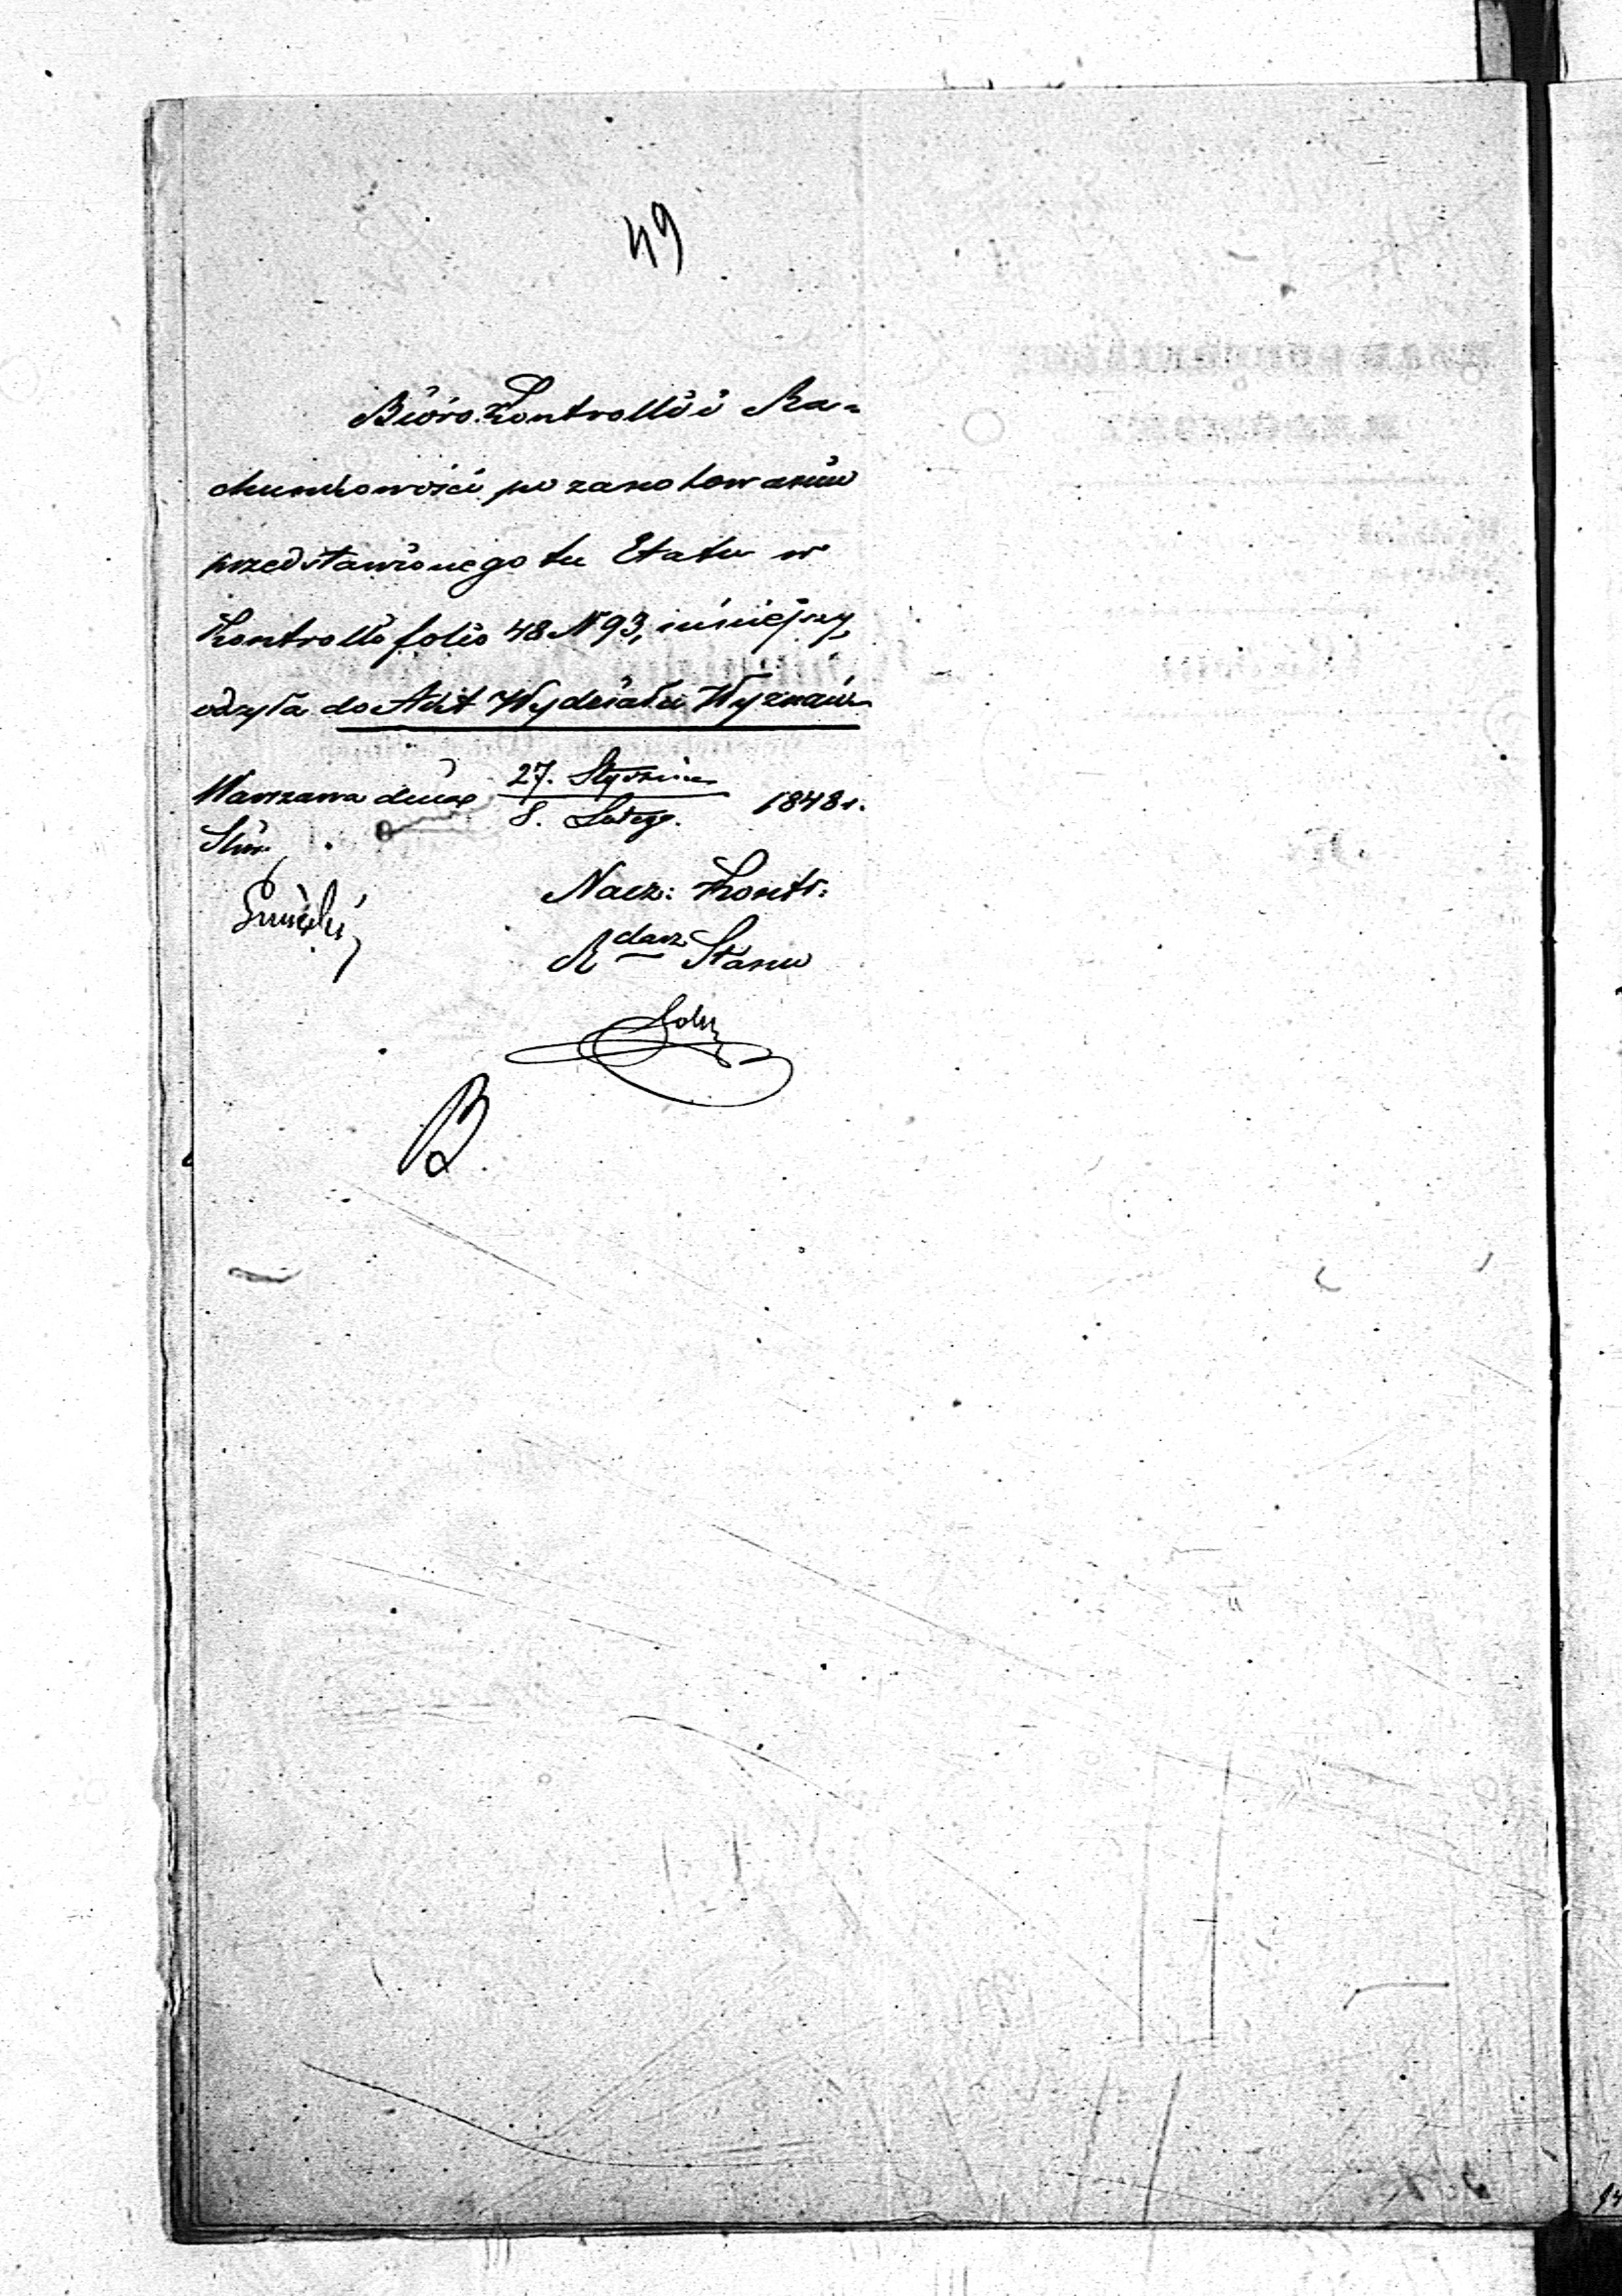 49
Bióro Kontrolli i Ra-
chunkowości po zanotowaniu
przedstawionego tu Etatu w
Kontrolli folio 48 N 93, niniejszy
odsyła do Akt Wydziału Wyznań
Warszawa dnia 27. Stycznia 1848 r.
8. Lutego
Nacz: Kontr:
R dca Stanu
B.